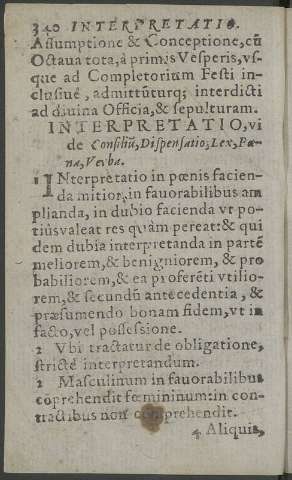 340 INTERPRETATIO.
Assumptione & Conceptione, cũ
Octaua tota, à primis Vesperis, vs-
que ad Completorium Festi in-
clusiuè, admittũturq; interdicti
ad diuina Officia, & sepulturam.
INTERPRETATIO, vi
de Consiliũ, Dispensatio, Lex, Pœ-
na, Verba.
1 INterpretatio in pœnis facien-
da mitior, in fauorabilibus am
plianda, in dubio facienda vt po-
tiùs valeat res quàm pereat: & qui
dem dubia interpretanda in partẽ
meliorem, & benigniorem, & pro
babiliorem, & ea proferẽti vtilio-
rem, & secundũ antecedentia, &
præsumendo bonam fidem, vt in
facto, vel possessione.
2 Vbi tractatur de obligatione,
strictè interpretandum.
3 Masculinum in fauorabilibus
cõprehendit fœmininum: in con-
tractibus non comprehendit.
4 Aliquis,